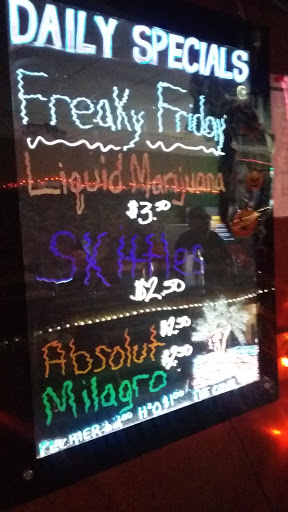 DAILY SPECIALS
Freaky Friday
Liquid Marijuana
$3.50
Skittles
$2.50
Absolut $2.50
Milagro $2.50
H2O $1.00